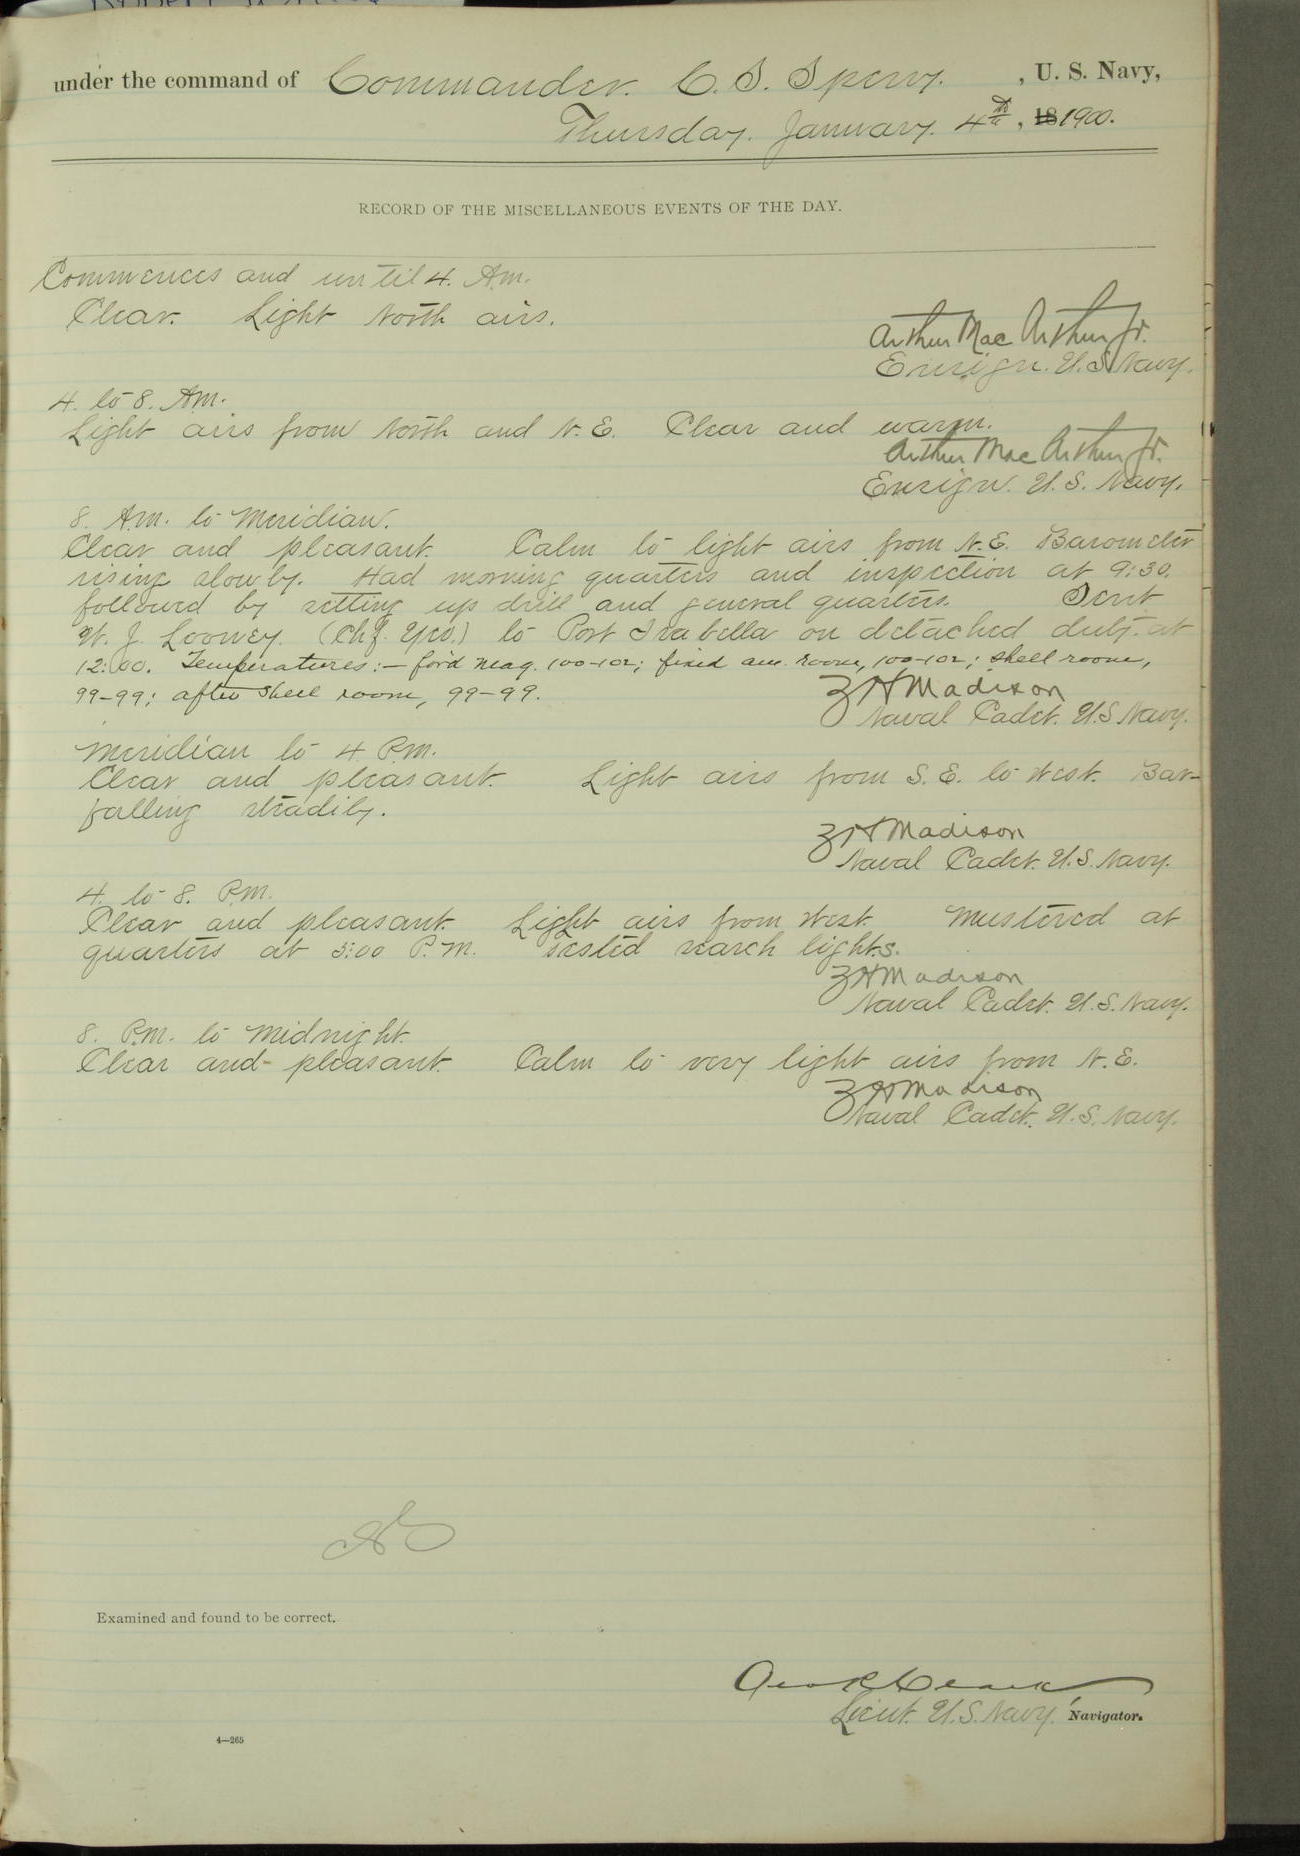 under the command of Commander. C. S. Sperry. , U. S. Navy,
Thursday. January. 4th, 18 1900.
RECORD OF THE MISCELLANEOUS EVENTS OF THE DAY.
Commences and until 4. A.m.
Clear. Light North airs.
Arthur Mac Arthur Jr.
Ensign. U.S. Navy.
4. to 8. A.m.
Light airs from North and N.E. Clear and warm.
Arthur Mac Arthur Jr.
Ensign. U.S. Navy.
8. A.m. to Meridian.
Clear and pleasant. Calm to light airs from N.E. Barometer
rising slowly. Had morning quarters and inspection at 9:30.
followed by setting up drill and general quarters. Sent
W. J. Looney. (Chf. Yeo.) to Port Isabella on detached duty. at
12:00. Temperatures:— for'd mag. 100-102; fixed am. room, 100-102; shell room,
99-99; after shell room, 99-99.
Z H Madison
Naval Cadet. U.S. Navy.
Meridian to 4 P.m.
Clear and pleasant. Light airs from S.E. to West. Bar-
falling steadily.
Z H Madison
Naval Cadet. U.S. Navy.
4. to 8. P.m.
Clear and pleasant. Light airs from West. Mustered at
quarters at 5:00 P.M. Tested search lights.
Z H Madison
Naval Cadet. U.S. Navy.
8. P.m. to Midnight.
Clear and pleasant. Calm to very light airs from N.E.
Z H Madison
Naval Cadet. U.S. Navy.
Examined and found to be correct.
Geo R Clark
Lieut. U.S. Navy. Navigator.
4—265